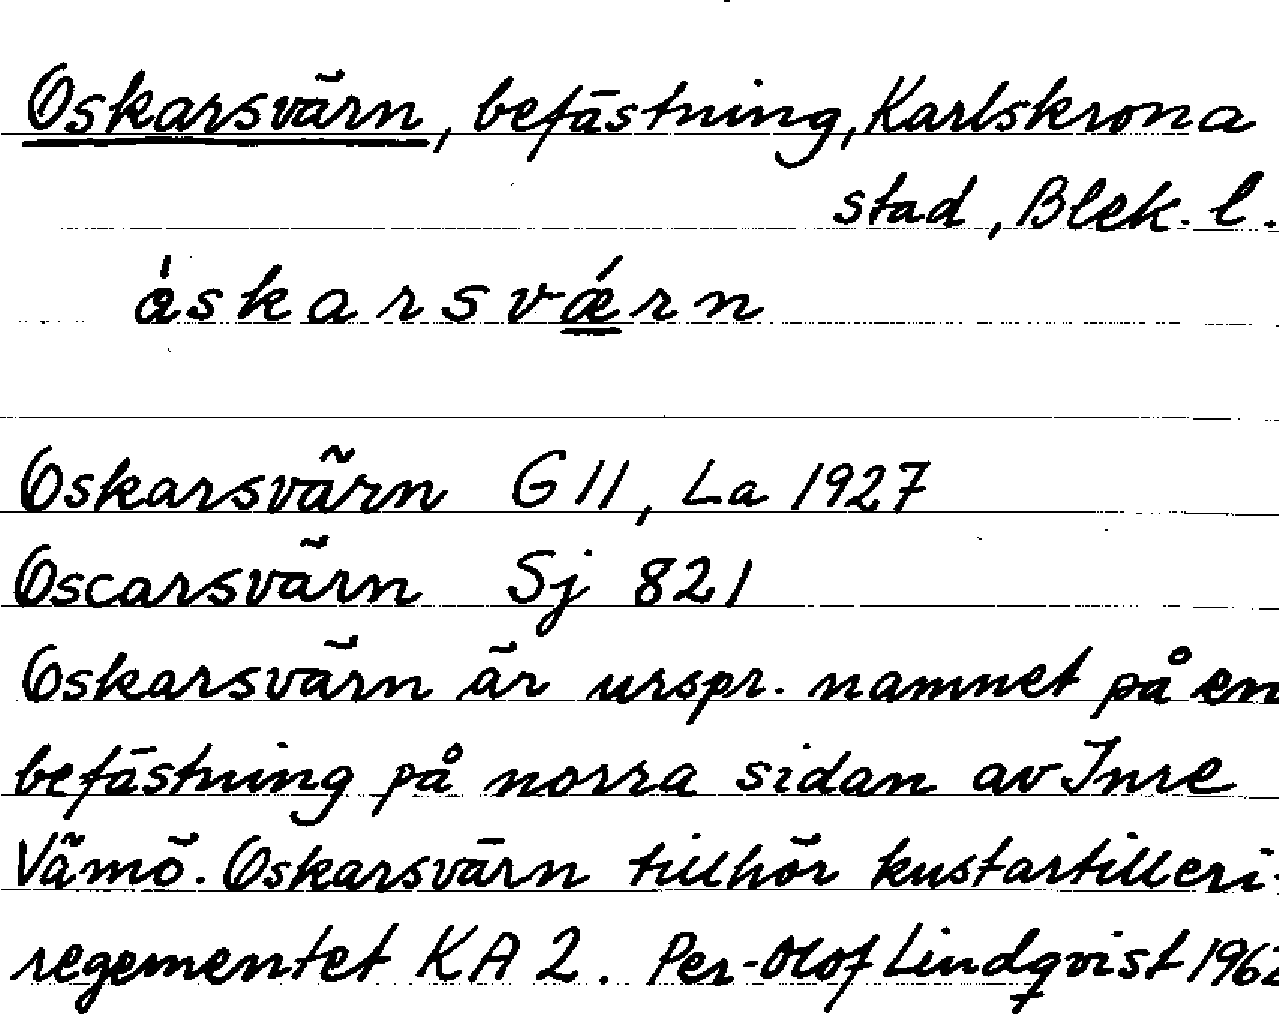 Oskarsvärn, befästning, Karlskrona
stad, Blek. l.
åskarsvǽrn
Oskarsvärn G11, La 1927
Oscarsvärn Sj 821
Oskarsvärn är urspr. namnet på en
befästning på norra sidan av Inre
Vämö. Oskarsvärn tillhör kustartilleri-
regementet KA 2. Per-Olof Lindqvist 1962